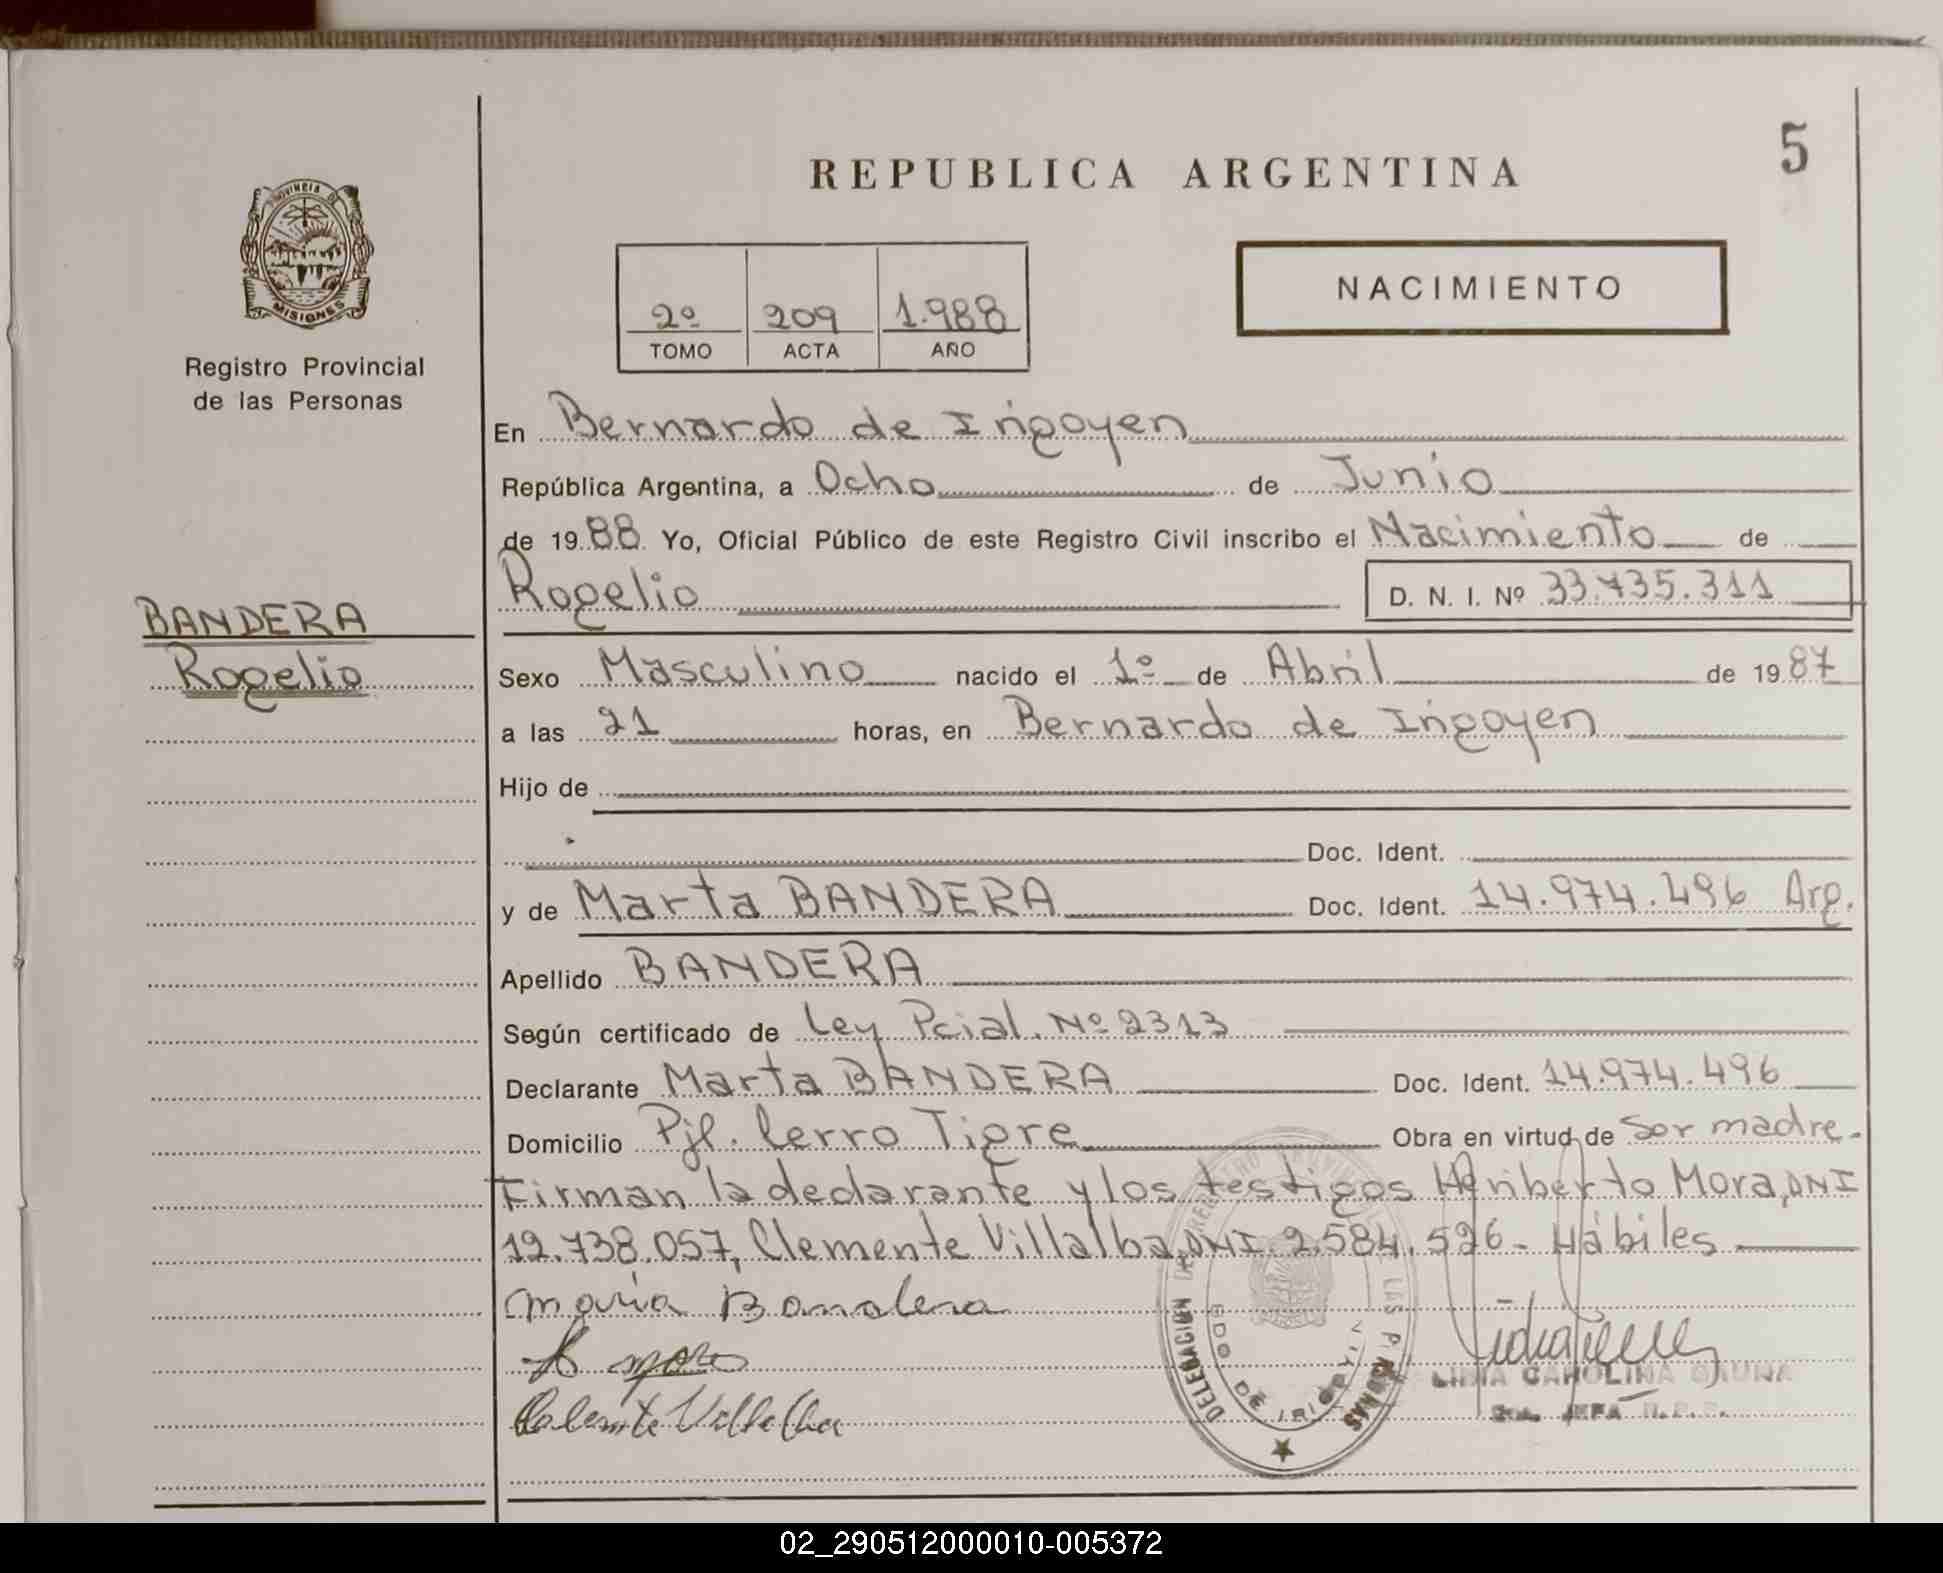 REPUBLICA ARGENTINA
5
PROVINCIA DE MISIONES
Registro Provincial
de las Personas
2º 209 1.988
TOMO ACTA AÑO
NACIMIENTO
En Bernardo de Irigoyen
República Argentina, a Ocho de Junio
de 1988 Yo, Oficial Público de este Registro Civil inscribo el Nacimiento de
Rogelio D. N. I. Nº 33.735.311
BANDERA
Rogelio
Sexo Masculino nacido el 1º de Abril de 1987
a las 21 horas, en Bernardo de Irigoyen
Hijo de
Doc. Ident.
y de Marta BANDERA Doc. Ident. 14.974.496 Arg.
Apellido BANDERA
Según certificado de Ley Pcial. Nº 2313
Declarante Marta BANDERA Doc. Ident. 14.974.496
Domicilio Pje. Cerro Tigre Obra en virtud de Ser madre-
Firman la declarante y los testigos Heriberto Mora, DNI
12.738.057, Clemente Villalba, DNI. 2.584.526- Hábiles
Maria Bandera
Villalba
DELEGACION DEL REGISTRO PROVINCIAL DE LAS PERSONAS
BDO DE IRIGOYEN
CAROLINA
JEFA
02_290512000010-005372